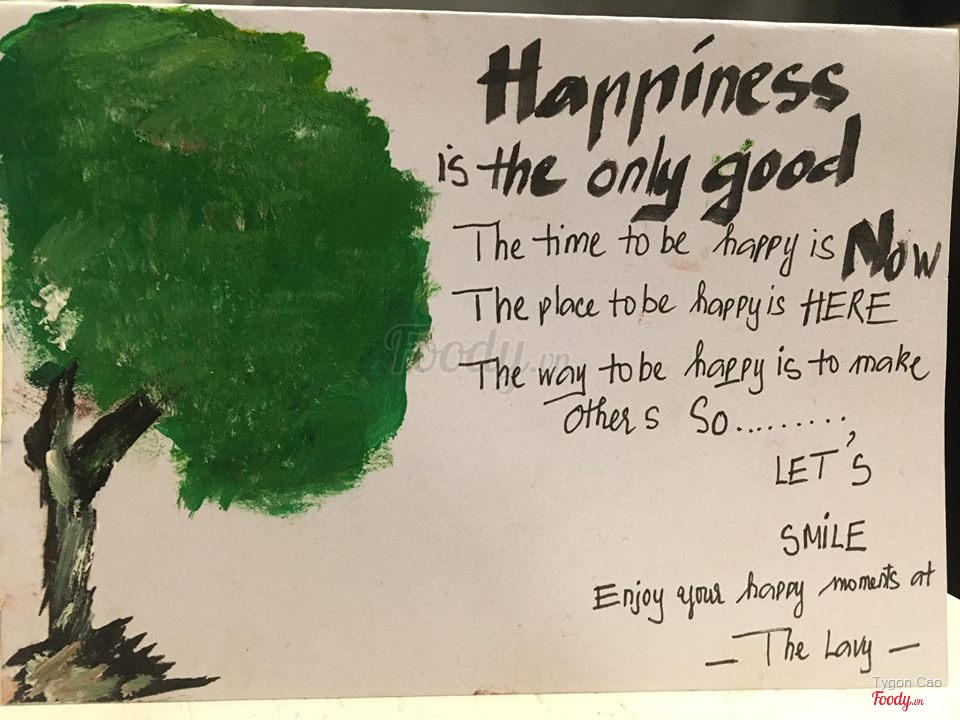 Happiness
is the only good
The time to be happy is Now
The place to be happy is HERE
The way to be happy is to make
others so.........
LET'S
SMiLE
Enjoy your happy moments at
— The Lavy —
Foody.vn
Tygon Cao
Foody.vn